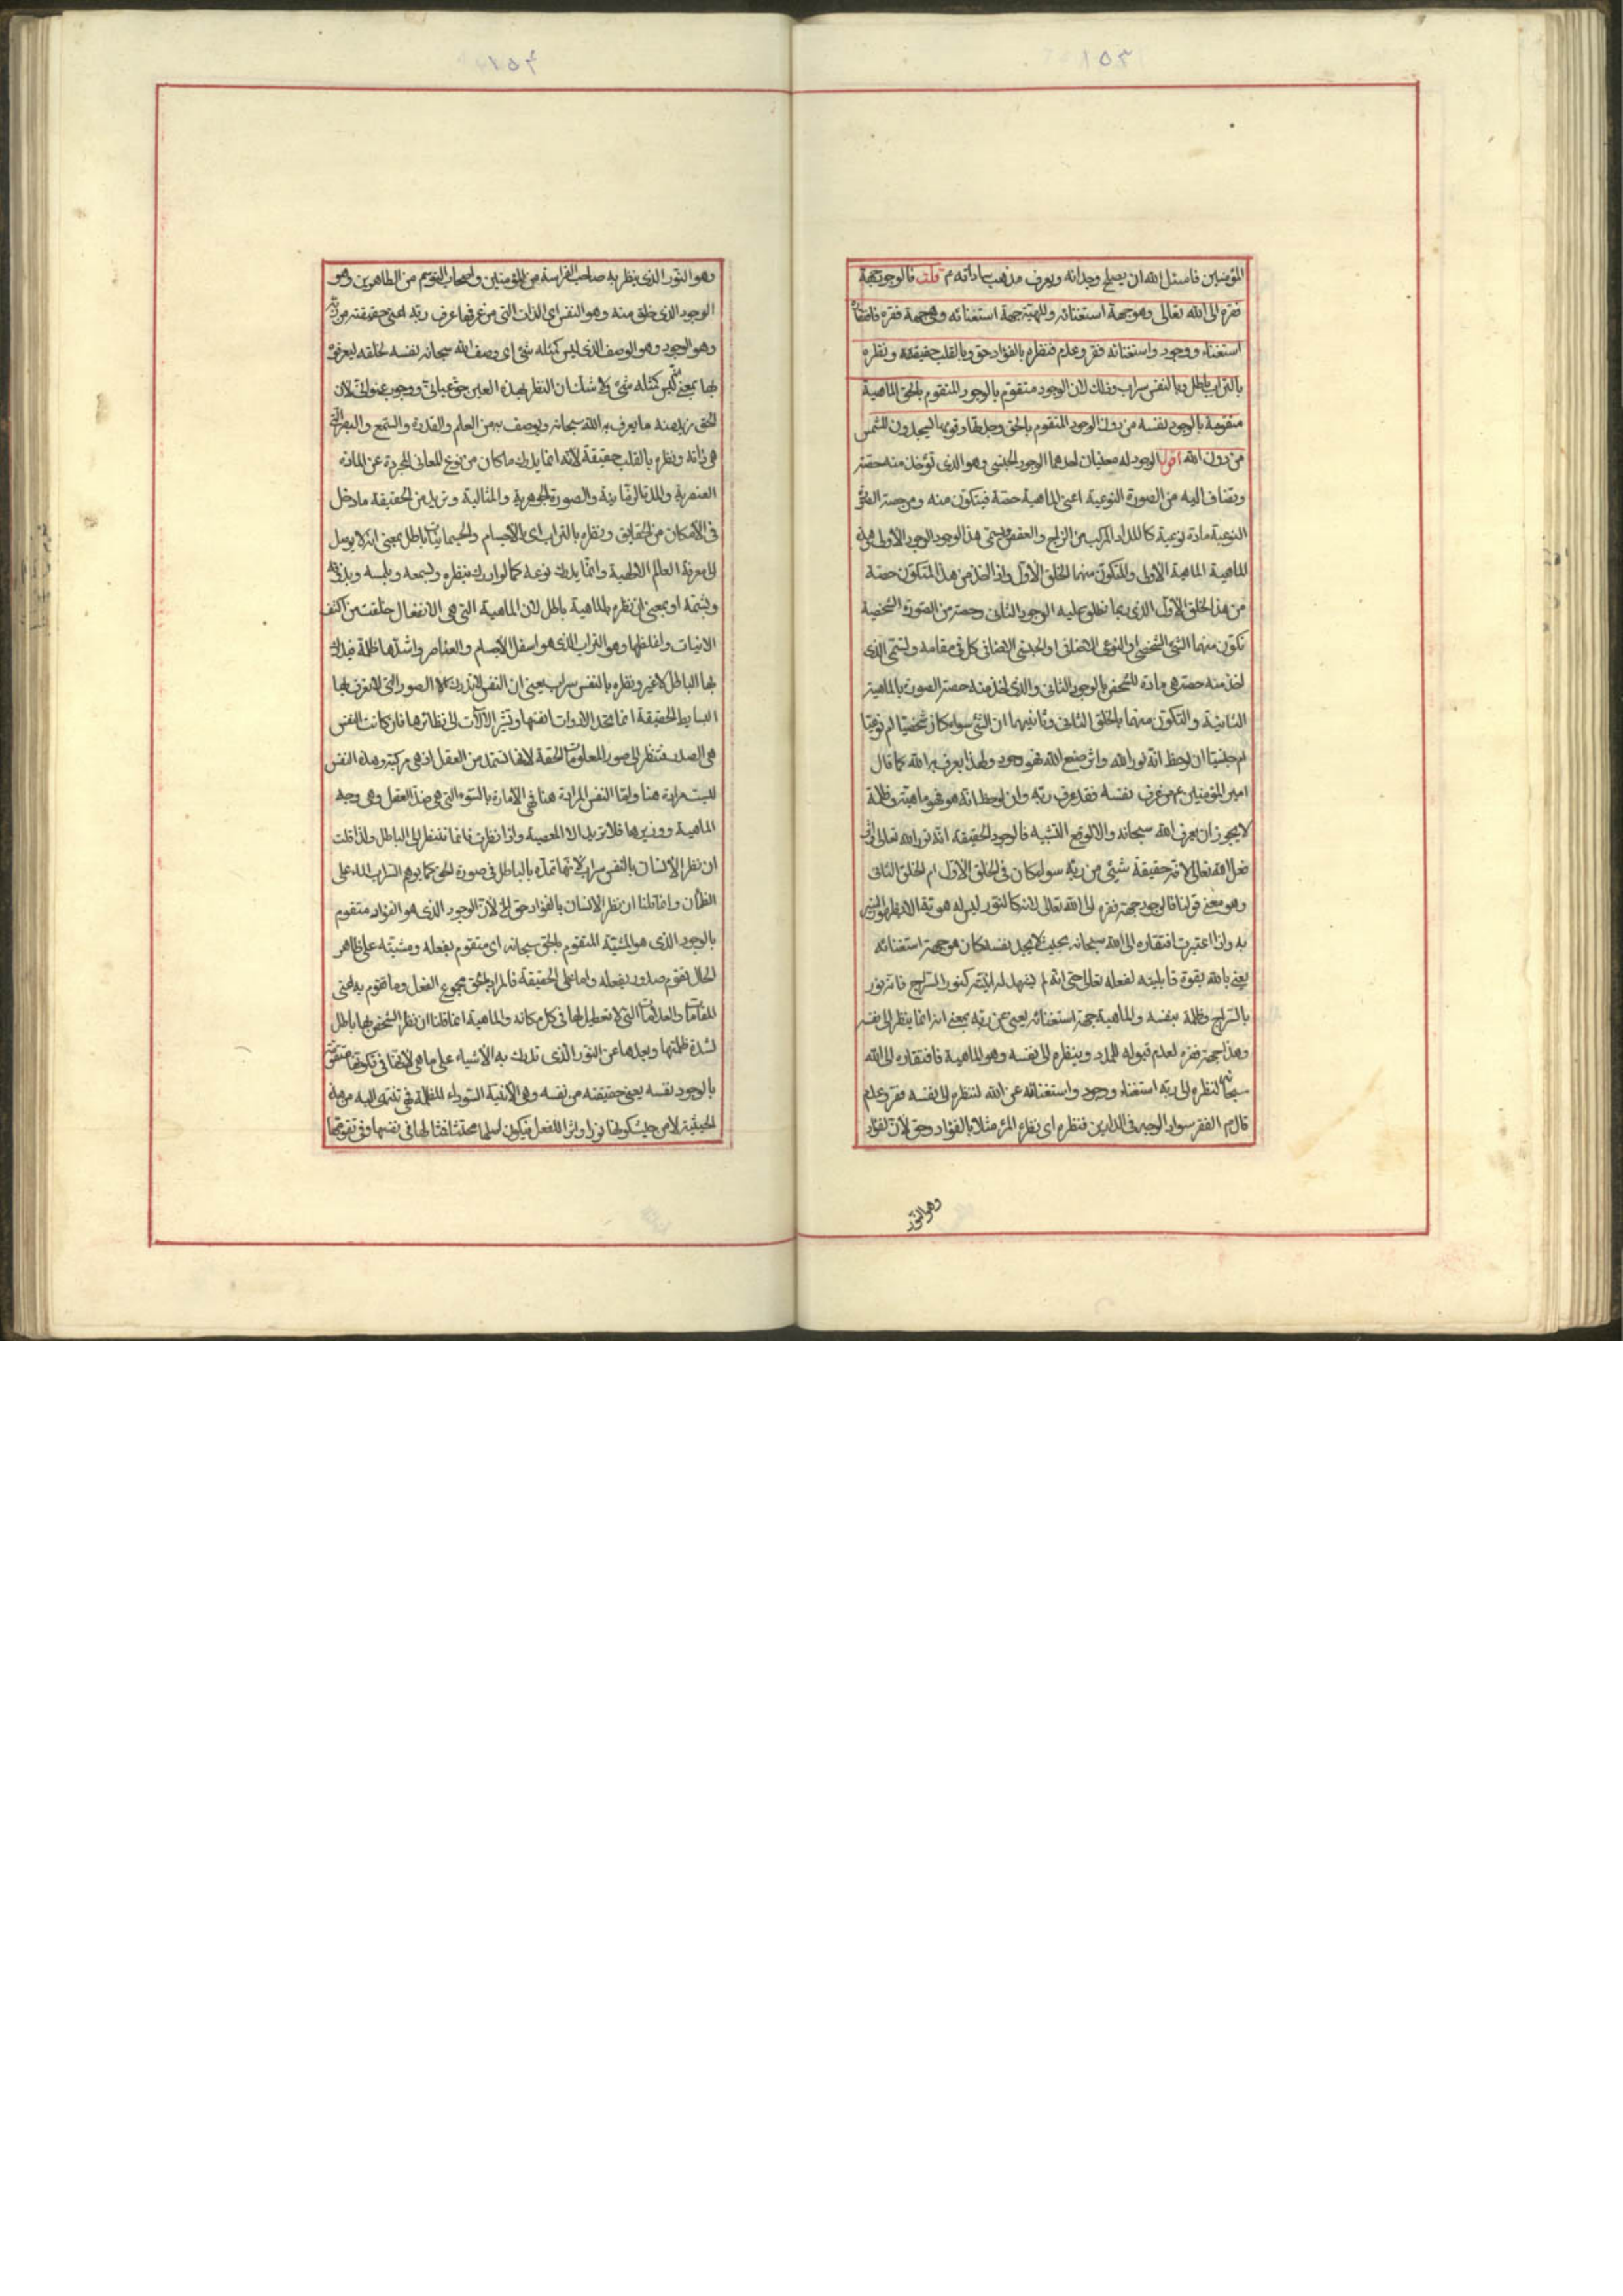 ١٥٣
المؤمنين فاسئل الله ان يصلح وجدانه ويعرف مذهب ساداته م قلت فالوجود جهة
فقره الى الله تعالى وهو جهة استغنائه وللمهية جهة استغنائه وهي جهة فقره فافتقاره
استغناء ووجود واستغنائه فقر وعدم فنظره بالفؤاد حق وبالقلب حقيقة ونظره
بالتراب باطل وبالنفس سراب وذلك لان الوجود متقوم بالوجود المتقوم بالحق والماهية
متقومة بالوجود نفسه من دون الوجود المتقوم بالحق وجدتها وقومها يسجدون للشمس
من دون الله اقول الوجود له معنيان احدهما الوجود الجنسي وهو الذى تؤخذ منه حصة
ويضاف اليه من الصورة النوعية اعنى الماهية حصة فيتكون منه ومن حصة الصورة
النوعية مادة نوعية كالمداد المركب من الزاج والعفص ويسمى هذا الوجود الوجود الاول وهذه
الماهية الماهية الاولى والمتكون منهما الخلق الاول واذا اخذ من هذا المتكون حصة
من هذا الخلق الاول الذى ربما نطلق عليه الوجود الثانى وحصة من الصورة الشخصية
تكون منهما الشئ الشخصى او النوعى الاضافى او الجنسى الاضافى كل فى مقامه ويسمى الذى
اخذ منه حصة هى مادة للشخص بالوجود الثانى والذى اخذ منه حصة الصورة بالماهية
الثانية والمتكون منهما بالخلق الثانى وثانيهما ان الشئ سواء كان شخصيا ام نوعيا
ام جنسيا ان لوحظ انه نور الله واثر صنع الله فهو وجود ولهذا يعرف به الله كما قال
امير المؤمنين ع من عرف نفسه فقد عرف ربه وان لوحظ انه هو فهو ماهية وظلمة
لا يجوز ان يعرف الله سبحانه والا لوقع التشبيه فالوجود الحقيقة انه نور الله تعالى اى اثر
فعل الله تعالى لانه حقيقة شئ من ربه سواء كان فى الخلق الاول ام الخلق الثانى
وهو معنى قولنا فالوجود جهة فقره الى الله تعالى لانه كالنور ليس له هوية الا ظهور المنير
به واذا اعتبرت افتقاره الى الله سبحانه بحيث لا يجد نفسه كان هو جهة استغنائه
يعنى بالله بقوة قابليته لفعله تعالى حتى انه لم يشهد له انية كنور السراج فانه نور
بالسراج وظلمة بنفسه والماهية جهة استغنائه يعنى عن ربه بمعنى انه انما ينظر الى نفسه
وهذا جهة فقره لعدم قبوله للمدد وينظره الى نفسه وهو الماهية فافتقاره الى الله
سبحانه لنظره الى ربه استغناء ووجود واستغنائه عن الله لنظره الى نفسه فقر وعدم
قال م الفقر سواد الوجه فى الدارين فنظره اى نظر المرء مثلا بالفؤاد حق لان الفؤاد
وهو النور
١٥٤
وهو النور الذى ينظر به صاحب الفراسة من المؤمنين واصحاب التوسم من الطاهرين وهو
الوجود الذى خلق منه وهو النفس اى الذات التى من عرفها عرف ربه اعنى حقيقته من ربه
وهو الوجود وهو الوصف الذى ليس كمثله شئ اى وصف الله سبحانه نفسه لخلقه ليعرفوه
بها بمعنى ليس كمثله شئ لا شك ان النظر بهذه العين حق عيانى ووجود عنوانى لان
الحق نريد منه ما يعرف به الله سبحانه ويوصف به من العلم والقدرة والسمع والبصر التى
هى ذاته ونظره بالقلب حقيقة لانه انما يدرك ما كان من نوع المعانى المجردة عن المادة
العنصرية والمدة الزمانية والصورة الجوهرية والمثالية ونريد من الحقيقة ما دخل
فى الامكان من الحقايق ونظره بالتراب اى بالاجسام والجسمانيات باطل بمعنى انه لا يوصل
الى معرفة العالم الالهية وانما يدرك نوعه كما لو ادرك بنظره وسمعه ولمسه وبذوقه
وشمه او بمعنى ان نظره بالماهية باطل لان الماهية التى هى الانفعال خلقت من اكثف
الانيات واغلظها وهو التراب الذى هو اسفل الاجسام والعناصر واشدها ظلمة فيدرك
بها الباطل لا غير ونظره بالنفس سراب يعنى ان النفس لا تدرك الا الصور التى لا تعرف بها
البسايط الحقيقة انما تحد الادوات انفسها وتشير الآلات الى نظائرها فان كانت النفس
هى الصدر فتنظر الى صور المعلومات الحقة لانها تستمد من العقل اذ هى مركبه وهذه النفس
ليست مرادة هنا وانما النفس المرادة هنا فهى الامارة بالسوء التى هى ضد العقل وهى وجه
الماهية ووزيرها فلا تريد الا المعصية واذا نظرت فانما تنظر الى الباطل ولذا قلت
ان نظر الانسان بالنفس سراب لانها تمده بالباطل فى صورة الحق كما يوهم السراب الماء على
الظمأن وانما قلنا ان نظر الانسان بالفؤاد حق الخ لان الوجود الذى هو الفؤاد متقوم
بالوجود الذى هو المشية المتقوم بالحق سبحانه اى متقوم بفعله ومشيته على ظاهر
الحال تقوم صدور بفعله واما على الحقيقة فالمراد بالحق مجموع الفعل وما تقوم به اعنى
المقامات والعلامات التى لا تعطيل لها فى كل مكان والماهية انما قلنا ان نظر الشخص بها باطل
لشدة ظلمتها وبعدها عن النور الذى تدرك به الاشياء على ما هى لانها فى تكونها متقومة
بالوجود نفسه يعنى حقيقته من نفسه وهى الانية السوداء المظلمة فهى تنتهى اليه من هذه
الحيثية لا من حيث كونها نورا واثرا للفعل فيكون اسلها مجتثا لها فى نفسها وفى تقومها